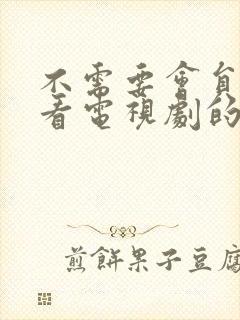 不需要會員
看電視劇的
煎餅果子豆腐